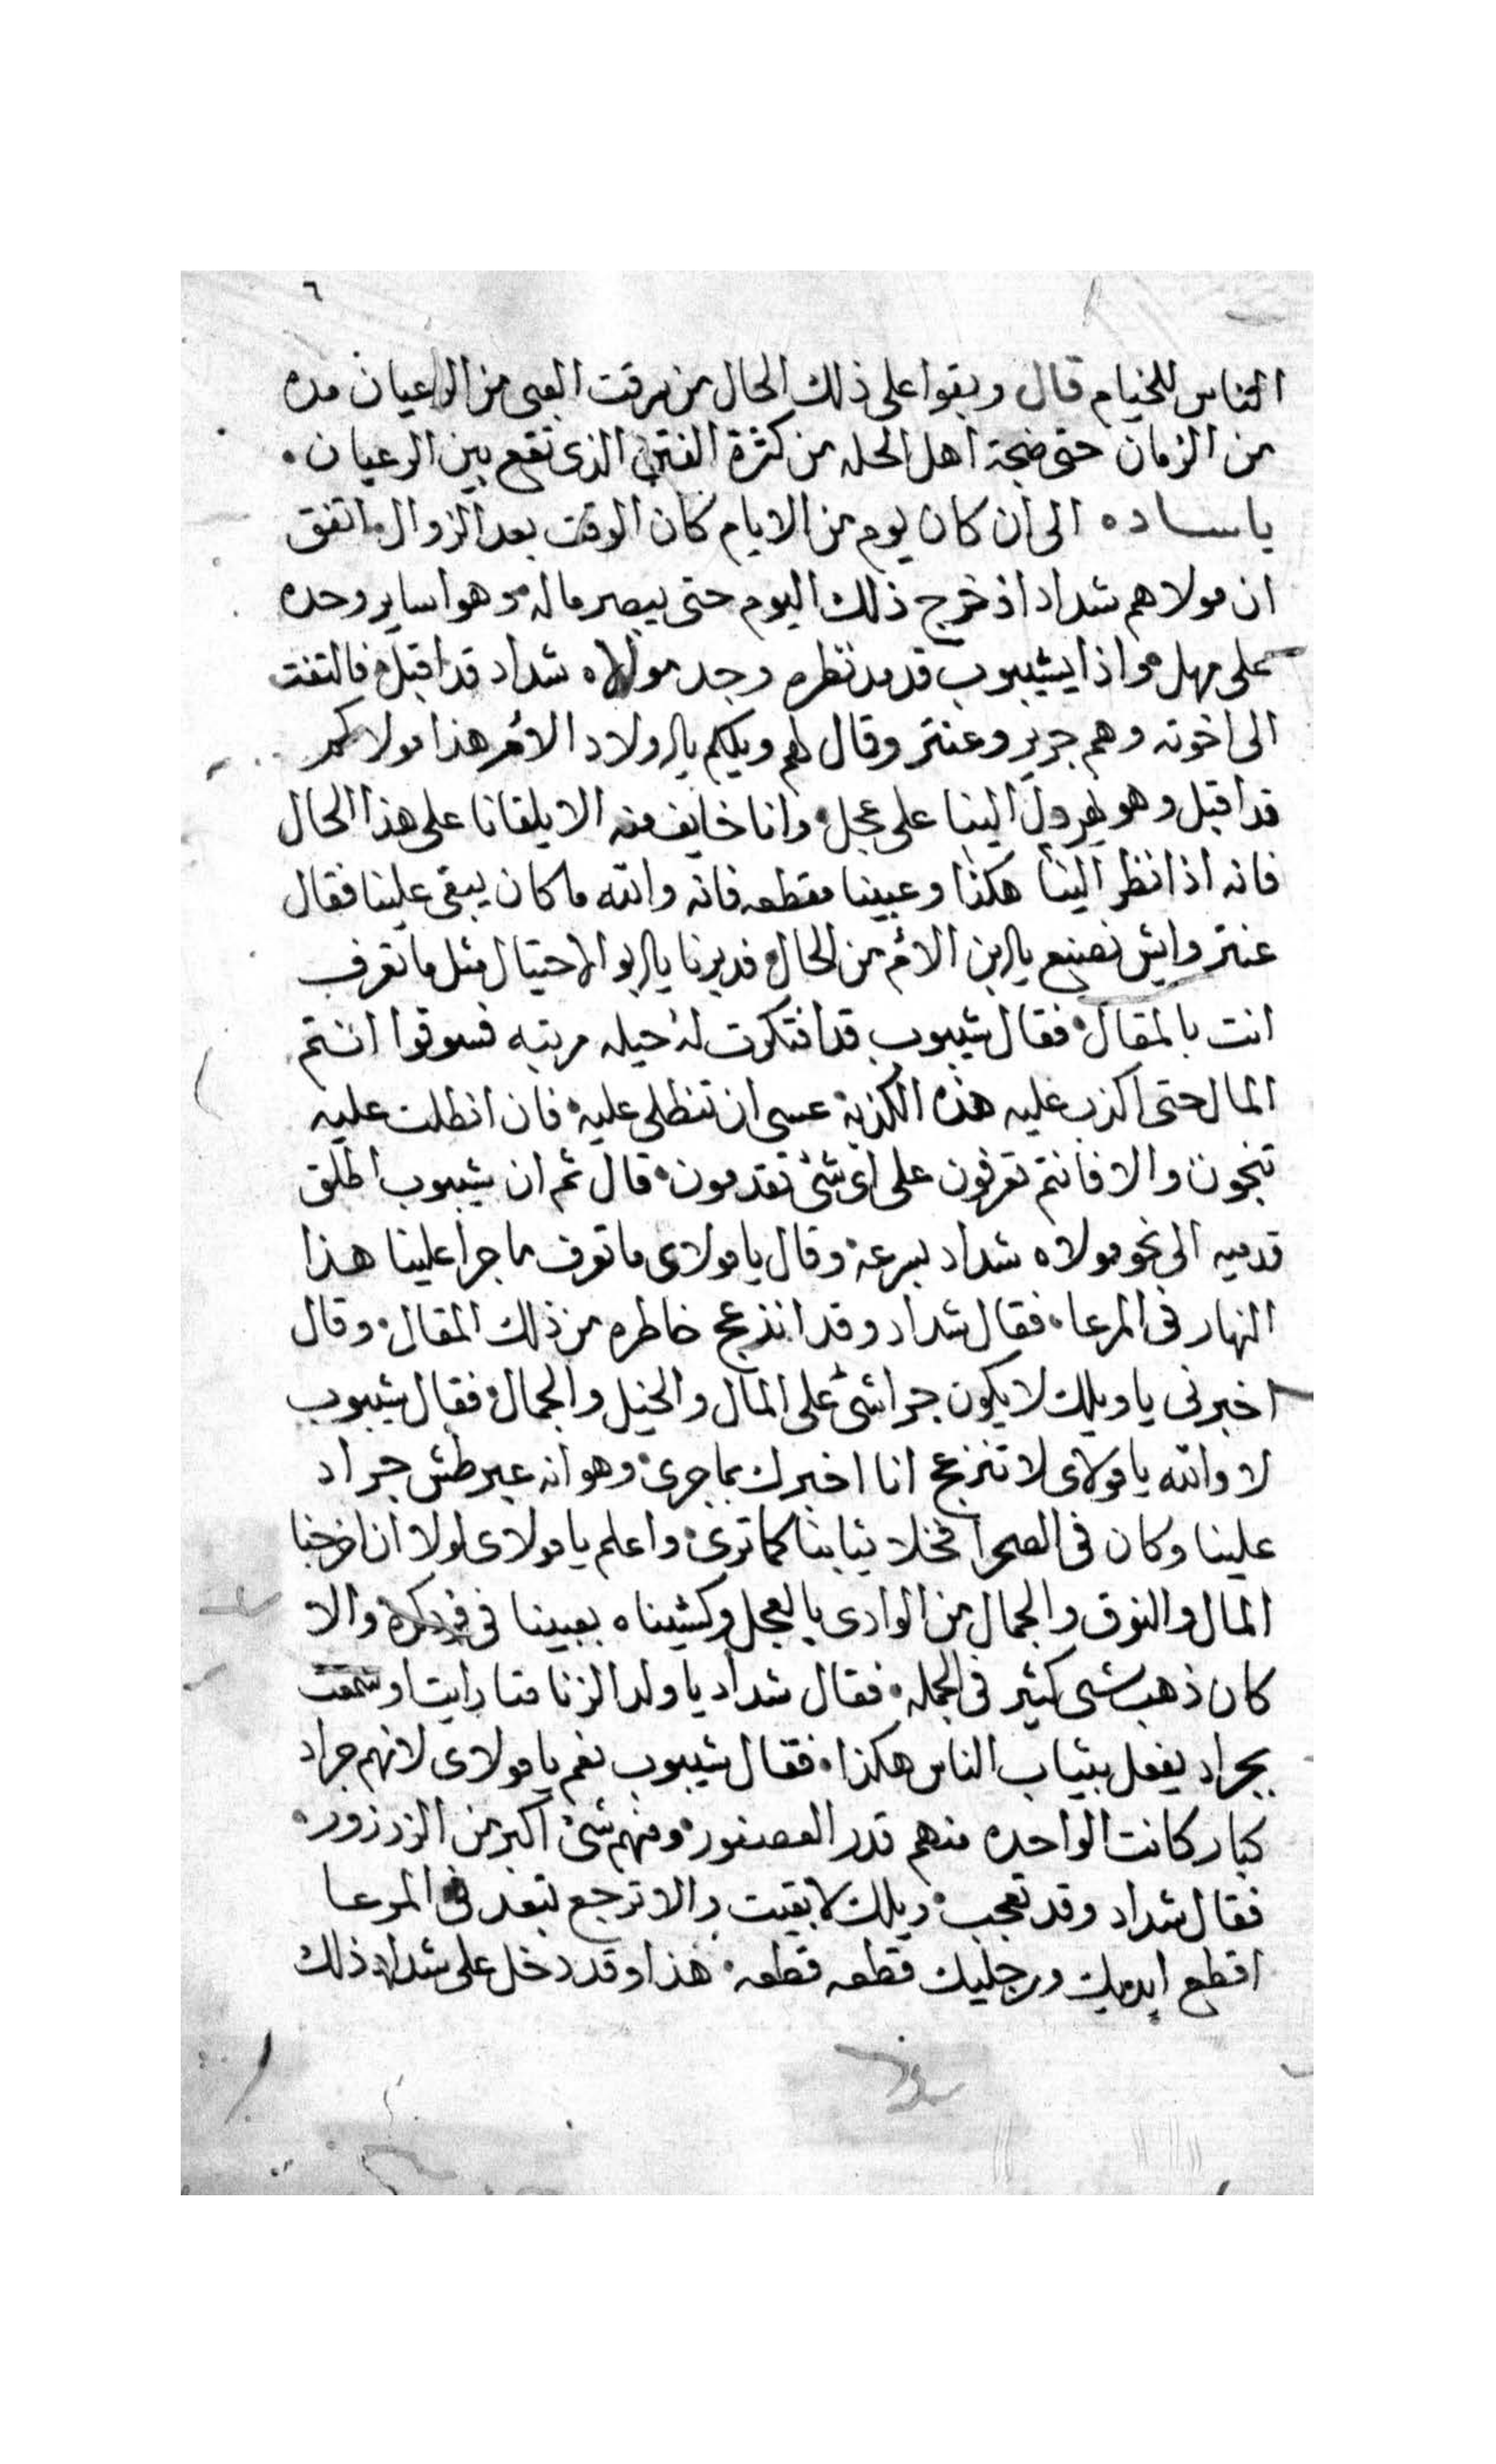 ٦
الناس للخيام قال وبقوا على ذلك الحال من سرقت العبى من الرعيان مده
من الزمان حتى ضجة اهل الحله من كثرة الفتن الذى تقع بين الرعيان.
ياساده الى ان كان يوم من الايام كان الوقت بعد الزوال اتفق
ان مولاهم شداد اذ خرج ذلك اليوم حتى يبصر ماله وهوا ساير وحده
على مهل واذا بشيبوب قد مد نظره وجد مولاه شداد قد اقبل فالتفت
الى اخوته وهم جرير وعنتر وقال لهم ويلكم يا اولاد الأم هذا مولاكم
قد اقبل وهو يهرول الينا على عجل وانا خايف منه الا يلقانا على هذا الحال
فانه اذا نظر الينا هكذا وعبينا مقطعه فانه والله ما كان يبقى علينا فقال
عنتر وايش نصنع يا ابن الأم من الحال فدبرنا يا ابو الاحتيال مثل ما تعرف
انت بالمقال. فقال شيبوب قد افتكرت له حيله مرتبه فسوقوا انتم
المال حتى اكذب عليه هذه الكذبة عسى ان تنطلى عليه فان انطلت عليه
تنجون والا فانتم تعرفون على اى شئ تقدمون. قال ثم ان شيبوب اطلق
قدميه الى نحو مولاه شداد بسرعة. وقال يا مولاى ما تعرف ما جرا علينا هذا
النهار فى المرعا. فقال شداد وقد انذعج خاطره من ذلك المقال. وقال
اخبرنى يا ويلك لا يكون جرا شئ على المال والخيل والجمال. فقال شيبوب
لا والله يا مولاى لا تنزعج انا اخبرك بما جرى. وهو انه عبر طش جراد
علينا وكان فى الصحرا فخلا ثيابنا كما ترى. واعلم يا مولاى لولا ان اخرجنا
المال والنوق والجمال من الوادى بالعجل وكشيناه بعبينا فى والا
كان ذهب شى كثير فى الجمله. فقال شداد يا ولد الزنا متا رايت او سمعت
بجراد يفعل بثياب الناس هكذا. فقال شيبوب نعم يا مولاى لانهم جراد
كبار كانت الواحده منهم قدر العصفور. ومنهم شئ اكبر من الزرزور.
فقال شداد وقد تعجب. ويلك لا بقيت والا ترجع تبعد فى المرعا
اقطع ايديك ورجليك قطعه قطعه. هذا وقد دخل على شداد ذلك